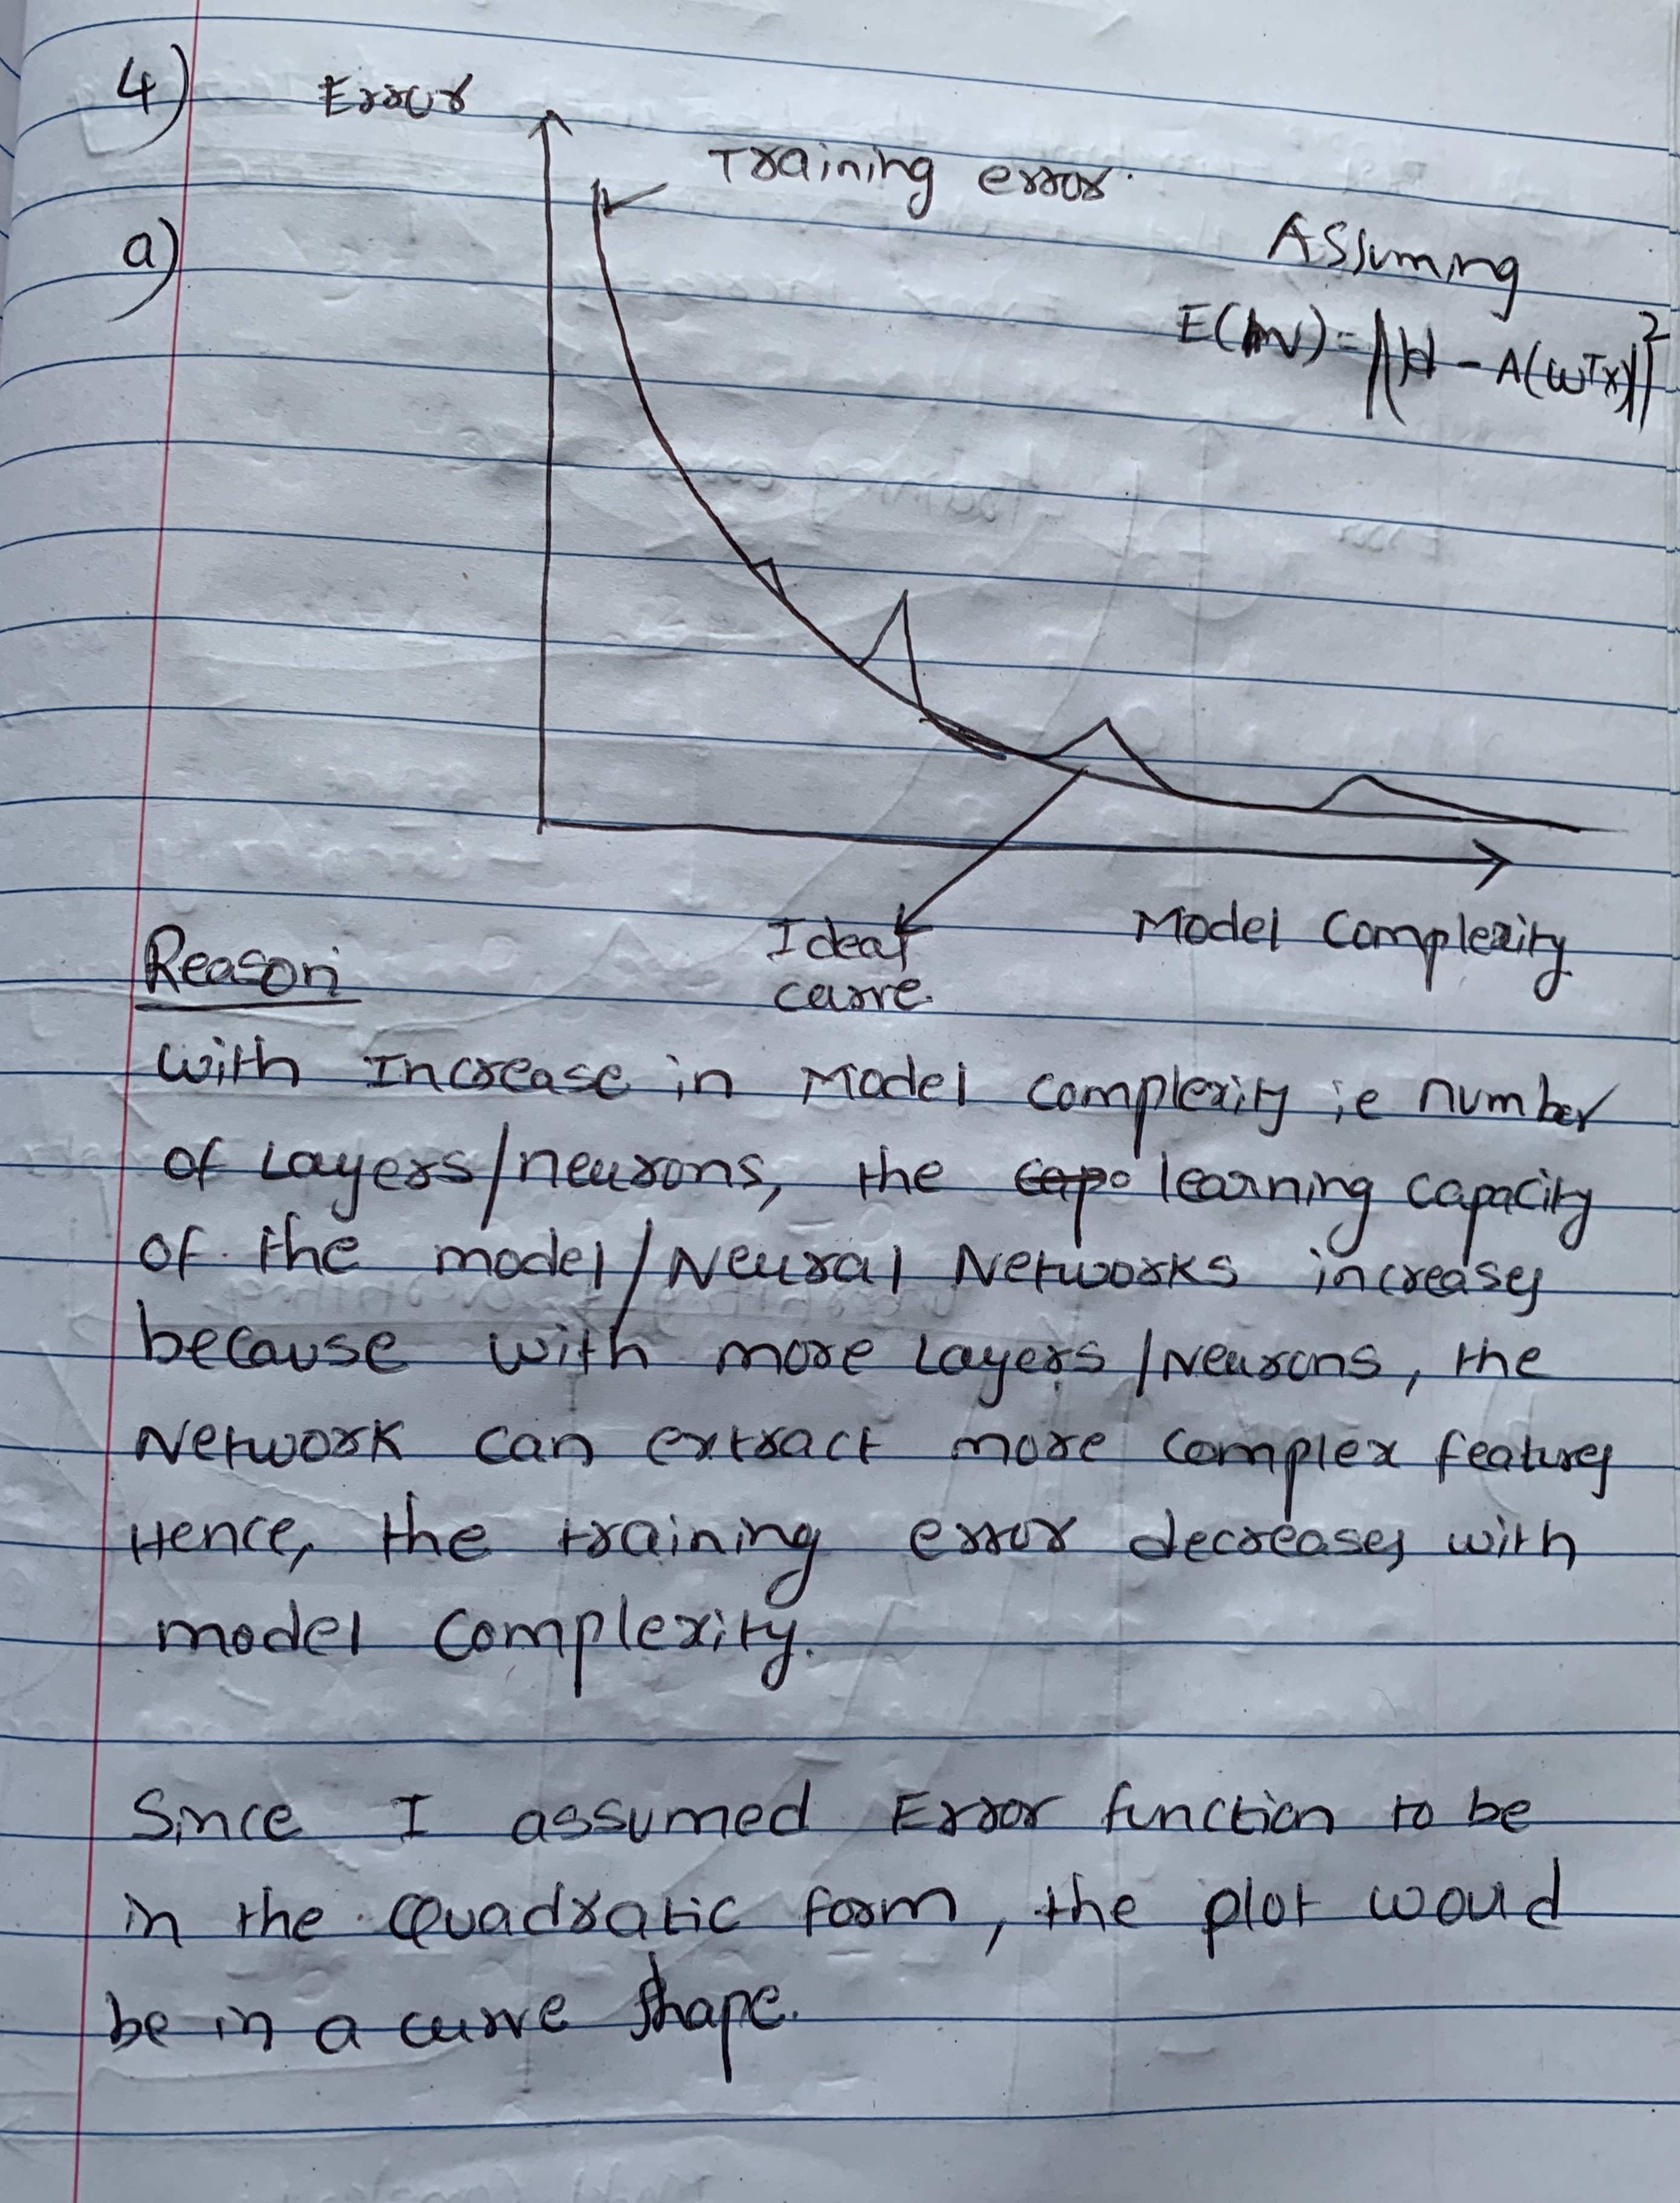 4)
Error
Training error.
a)
Assuming
E(W) = || d - A(ωᵀx)||²
Ideal
curve.
Model Complexity
Reason
with Increase in Model Complexity ie number
of Layers/neurons, the learning capacity
of the model/Neural Networks increases
because with more Layers/Neurons, the
Network can extract more complex features
Hence, the training error decreases with
model complexity.
Since I assumed Error function to be
in the Quadratic form, the plot would
be in a curve shape.